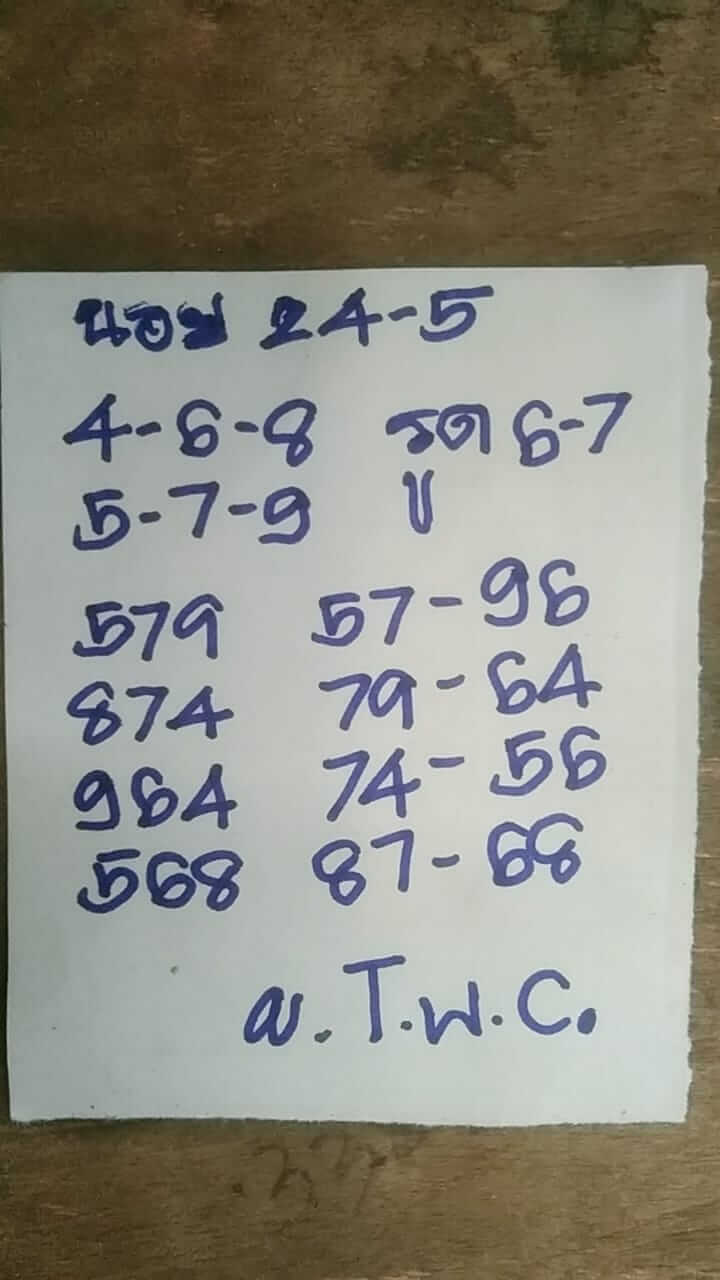 24-5
4-6-8 รูด 6-7
5-7-9 บ
579 57-96
874 79-64
964 74-56
568 87-68
T.W.C.